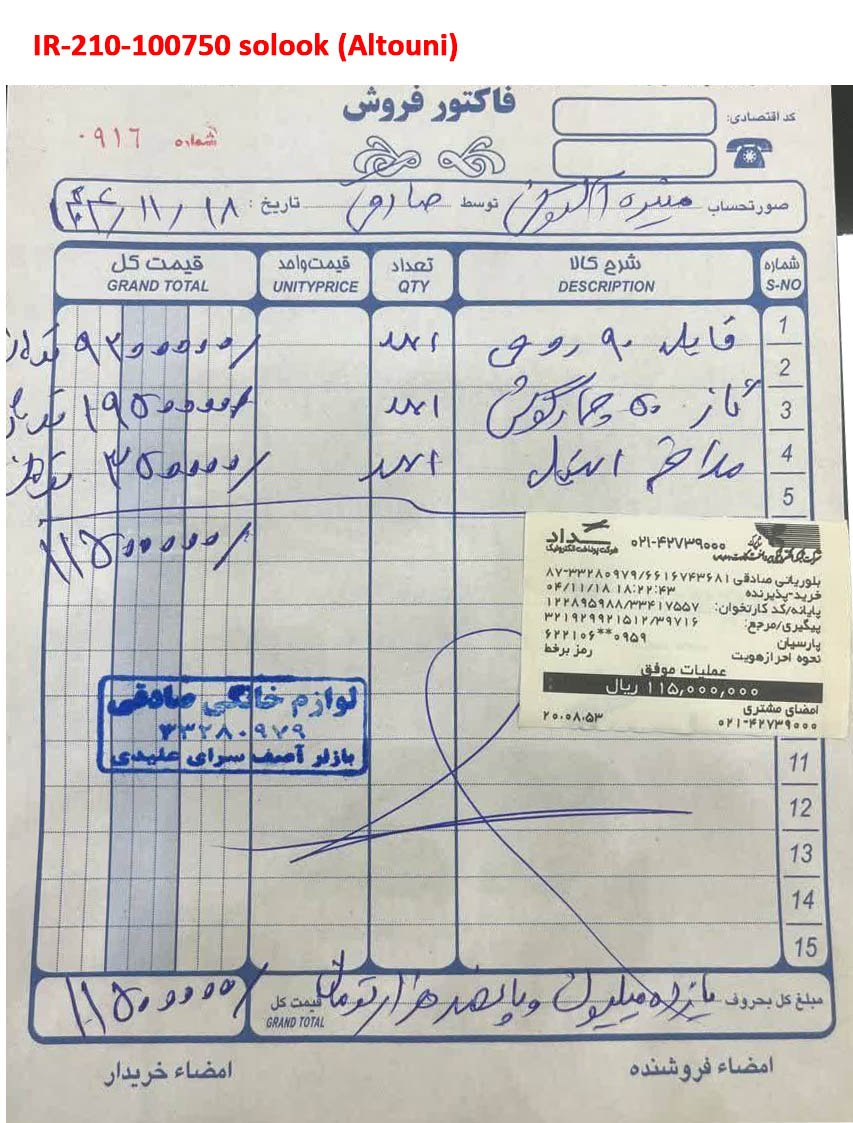 IR-210-100750 solook (Altouni)
فاکتور فروش
کد اقتصادی:
شماره ۰۹۱۶
صورتحساب منیره توسط صادق تاریخ: ۱۱/۱۸
شماره S-NO
شرح کالا DESCRIPTION
تعداد QTY
قیمت واحد UNITYPRICE
قیمت کل GRAND TOTAL
1
2
3
4
5
قابلمه ۹۰ روحی ۱عدد ۹۲۰۰۰۰۰/
گاز ۵۰ چهارگوش ۱عدد ۱۹۵۰۰۰۰/
استیل ۱عدد ۳۵۰۰۰۰/
۱۱۵۰۰۰۰۰/
سداد
شرکت پرداخت الکترونیک
۰۲۱-۴۲۷۳۹۰۰۰
بلوریاتی صادقی ۸۷-۳۳۲۸۰۹۷۹/۶۶۱۶۷۴۳۶۸۱
خرید-پذیرنده ۰۴/۱۱/۱۸ ۱۸:۲۲:۴۳
پایانه/کد کارتخوان: ۱۲۲۸۹۵۹۸۸/۳۳۴۱۷۵۵۷
پیگیری/مرجع: ۳۲۱۹۲۹۹۲۱۵۱۲/۳۹۷۱۶
پارسیان ۶۲۲۱۰۶**۰۹۵۹
نحوه احراز هویت رمز برخط
عملیات موفق
۱۱۵,۰۰۰,۰۰۰ ریال
امضای مشتری
۰۲۱-۴۲۷۳۹۰۰۰ ۲۰.۰۸.۵۳
لوازم خانگی صادقی
۳۳۲۸۰۹۷۹
بازار آصف سرای علیدی
11
12
13
14
15
مبلغ کل بحروف یازده میلیون و پانصد هزار تومان
قیمت کل GRAND TOTAL ۱۱۵۰۰۰۰۰/
امضاء فروشنده
امضاء خریدار